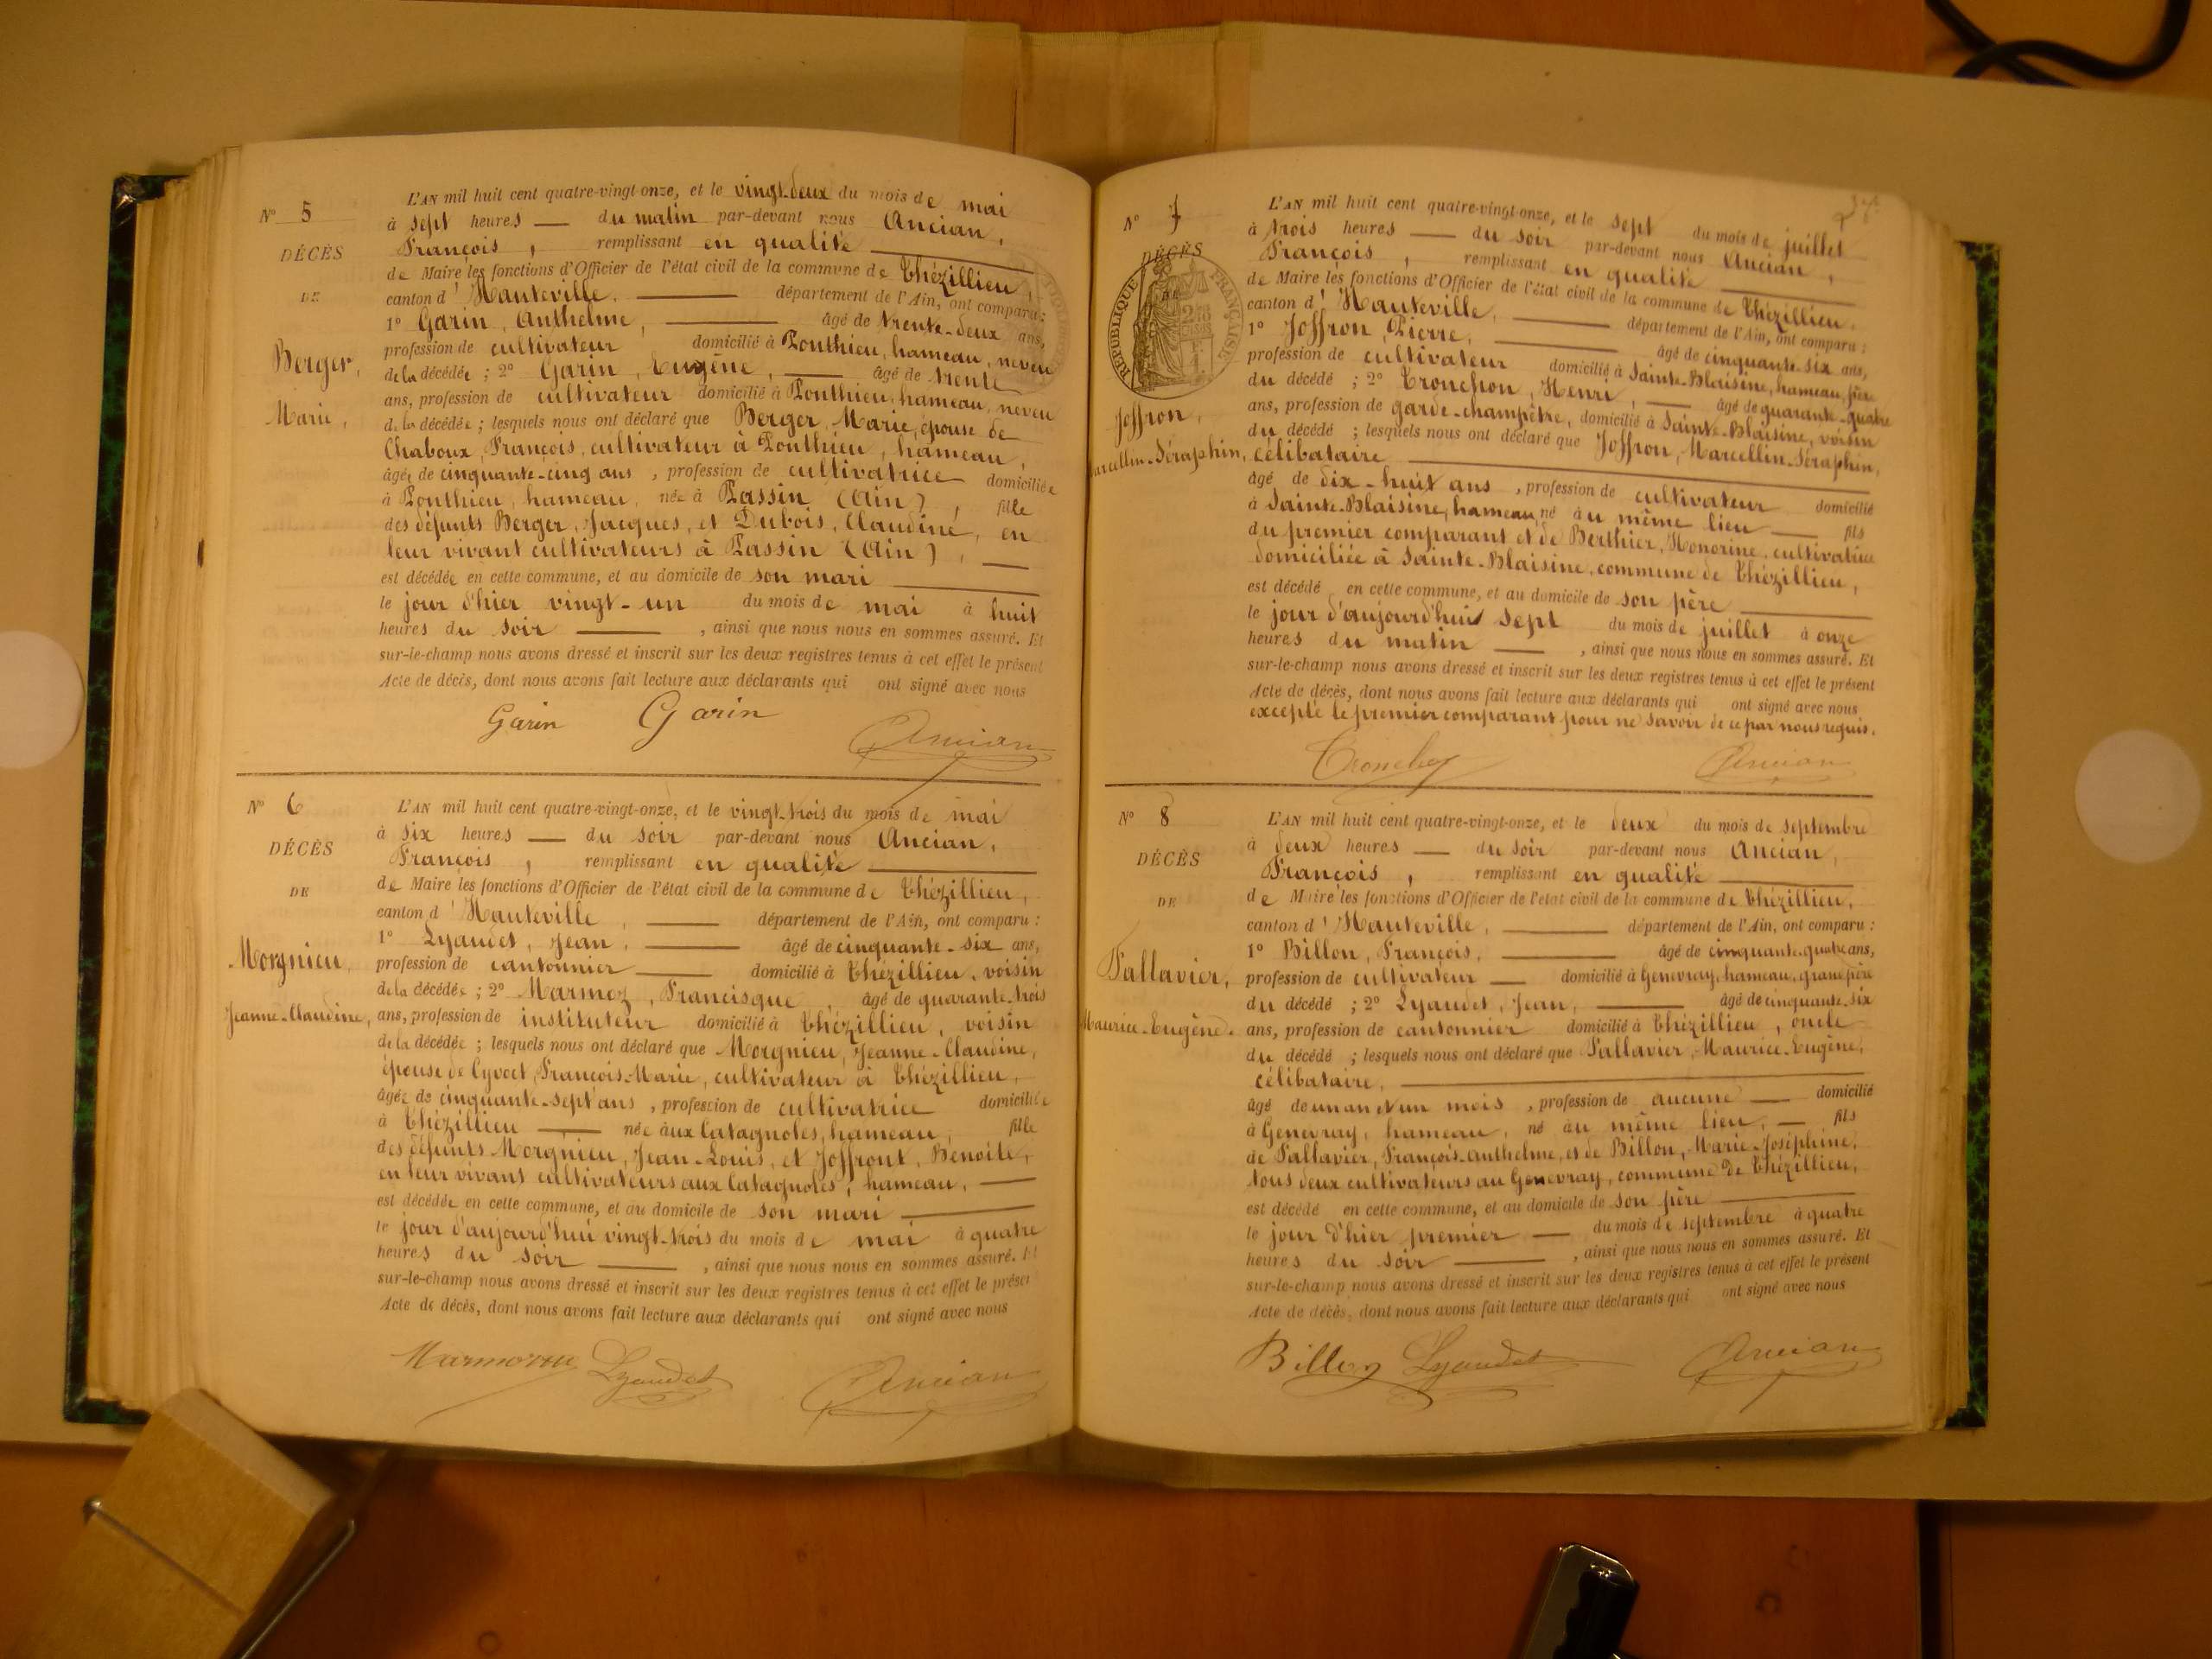 N° 5
DÉCÈS
DE
Berger,
Marie,
L'AN mil huit cent quatre-vingt-onze, et le vingt-deux du mois de mai
à sept heures — du matin par-devant nous Ancian,
François, remplissant en qualité
de Maire les fonctions d'Officier de l'état civil de la commune de Thézillieu,
canton d'Hauteville, département de l'Ain, ont comparu :
1° Garin, Anthelme, âgé de trente-deux ans,
profession de cultivateur domicilié à Ponthieu, hameau, neveu
de la décédée ; 2° Garin, Eugène, âgé de trente
ans, profession de cultivateur domicilié à Ponthieu, hameau, neveu
de la décédée ; lesquels nous ont déclaré que Berger, Marie, épouse de
Chaboux, François, cultivateur à Ponthieu, hameau,
âgée de cinquante-cinq ans, profession de cultivatrice domiciliée
à Ponthieu, hameau, née à Passin (Ain), fille
des défunts Berger, Jacques, et Dubois, Claudine, en
leur vivant cultivateurs à Passin (Ain), —
est décédée en cette commune, et au domicile de son mari
le jour d'hier vingt-un du mois de mai à huit
heures du soir — , ainsi que nous nous en sommes assuré. Et
sur-le-champ nous avons dressé et inscrit sur les deux registres tenus à cet effet le présent
Acte de décès, dont nous avons fait lecture aux déclarants qui ont signé avec nous
Garin Garin Ancian
N° 6
DÉCÈS
DE
Morgnieu,
Jeanne-Claudine,
L'AN mil huit cent quatre-vingt-onze, et le vingt-trois du mois de mai
à six heures — du soir par-devant nous Ancian,
François, remplissant en qualité
de Maire les fonctions d'Officier de l'état civil de la commune de Thézillieu,
canton d'Hauteville, département de l'Ain, ont comparu :
1° Lyaudet, Jean, âgé de cinquante-six ans,
profession de cantonnier — domicilié à Thézillieu, voisin
de la décédée ; 2° Marmoz, Francisque, âgé de quarante-trois
ans, profession de instituteur domicilié à Thézillieu, voisin
de la décédée ; lesquels nous ont déclaré que Morgnieu, Jeanne-Claudine,
épouse de Cyvoct, François-Marie, cultivateur à Thézillieu,
âgée de cinquante-sept ans, profession de cultivatrice domiciliée
à Thézillieu — née aux Catagnoles, hameau, fille
des défunts Morgnieu, Jean-Louis, et Joffront, Benoite,
en leur vivant cultivateurs aux Catagnoles, hameau, —
est décédée en cette commune, et au domicile de son mari
le jour d'aujourd'hui vingt-trois du mois de mai à quatre
heures du soir — , ainsi que nous nous en sommes assuré. Et
sur-le-champ nous avons dressé et inscrit sur les deux registres tenus à cet effet le présent
Acte de décès, dont nous avons fait lecture aux déclarants qui ont signé avec nous
Lyaudet Ancian
N° 7
DÉCÈS
RÉPUBLIQUE FRANÇAISE
Joffron,
Marcellin-Séraphin,
L'AN mil huit cent quatre-vingt-onze, et le sept du mois de juillet
à trois heures — du soir par-devant nous Ancian,
François, remplissant en qualité
de Maire les fonctions d'Officier de l'état civil de la commune de Thézillieu,
canton d'Hauteville, département de l'Ain, ont comparu :
1° Joffron, Pierre, âgé de cinquante-six ans,
profession de cultivateur domicilié à Sainte-Blaisine, hameau, père
du décédé ; 2° Tronchon, Henri, âgé de quarante-quatre
ans, profession de garde-champêtre, domicilié à Sainte-Blaisine, voisin
du décédé ; lesquels nous ont déclaré que Joffron, Marcellin-Séraphin,
célibataire
âgé de dix-huit ans, profession de cultivateur domicilié
à Sainte-Blaisine, hameau, né au même lieu — fils
du premier comparant et de Berthier, Honorine, cultivatrice
domiciliée à Sainte-Blaisine, commune de Thézillieu,
est décédé en cette commune, et au domicile de son père
le jour d'aujourd'hui sept du mois de juillet à onze
heures du matin — , ainsi que nous nous en sommes assuré. Et
sur-le-champ nous avons dressé et inscrit sur les deux registres tenus à cet effet le présent
Acte de décès, dont nous avons fait lecture aux déclarants qui ont signé avec nous
excepté le premier comparant pour ne savoir de ce par nous requis.
Ancian
N° 8
DÉCÈS
DE
Pallavier,
Maurice-Eugène.
L'AN mil huit cent quatre-vingt-onze, et le deux du mois de septembre
à deux heures — du soir par-devant nous Ancian,
François, remplissant en qualité
de Maire les fonctions d'Officier de l'état civil de la commune de Thézillieu,
canton d'Hauteville, département de l'Ain, ont comparu :
1° Billon, François, âgé de cinquante-quatre ans,
profession de cultivateur — domicilié à Genevray, hameau, grand père
du décédé ; 2° Lyaudet, Jean, âgé de cinquante-six
ans, profession de cantonnier domicilié à Thézillieu, oncle
du décédé ; lesquels nous ont déclaré que Pallavier, Maurice-Eugène,
célibataire,
âgé de un an et un mois, profession de aucune — domicilié
à Genevray, hameau, né au même lieu, — fils
de Pallavier, François-Anthelme, et de Billon, Marie-Joséphine,
tous deux cultivateurs au Genevray, commune de Thézillieu,
est décédé en cette commune, et au domicile de son père
le jour d'hier premier — du mois de septembre à quatre
heures du soir — , ainsi que nous nous en sommes assuré. Et
sur-le-champ nous avons dressé et inscrit sur les deux registres tenus à cet effet le présent
Acte de décès, dont nous avons fait lecture aux déclarants qui ont signé avec nous
Billon Lyaudet Ancian